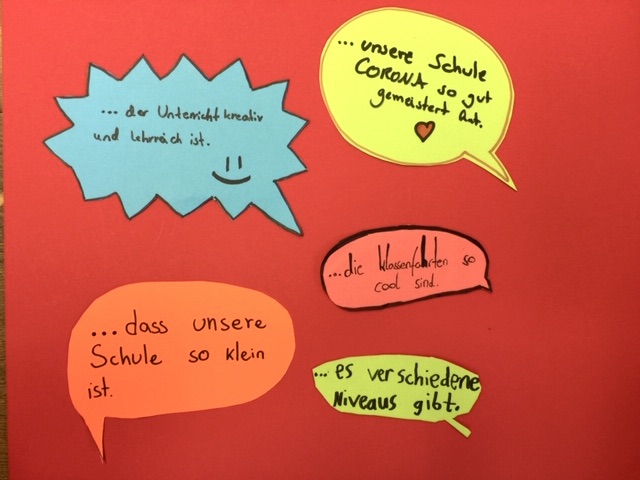 ... der Unterricht kreativ
und lehrreich ist.
... unsere Schule
CORONA so gut
gemeistert hat.
...die Klassenfahrten so
cool sind.
...dass unsere
Schule so klein
ist.
...es verschiedene
Niveaus gibt.